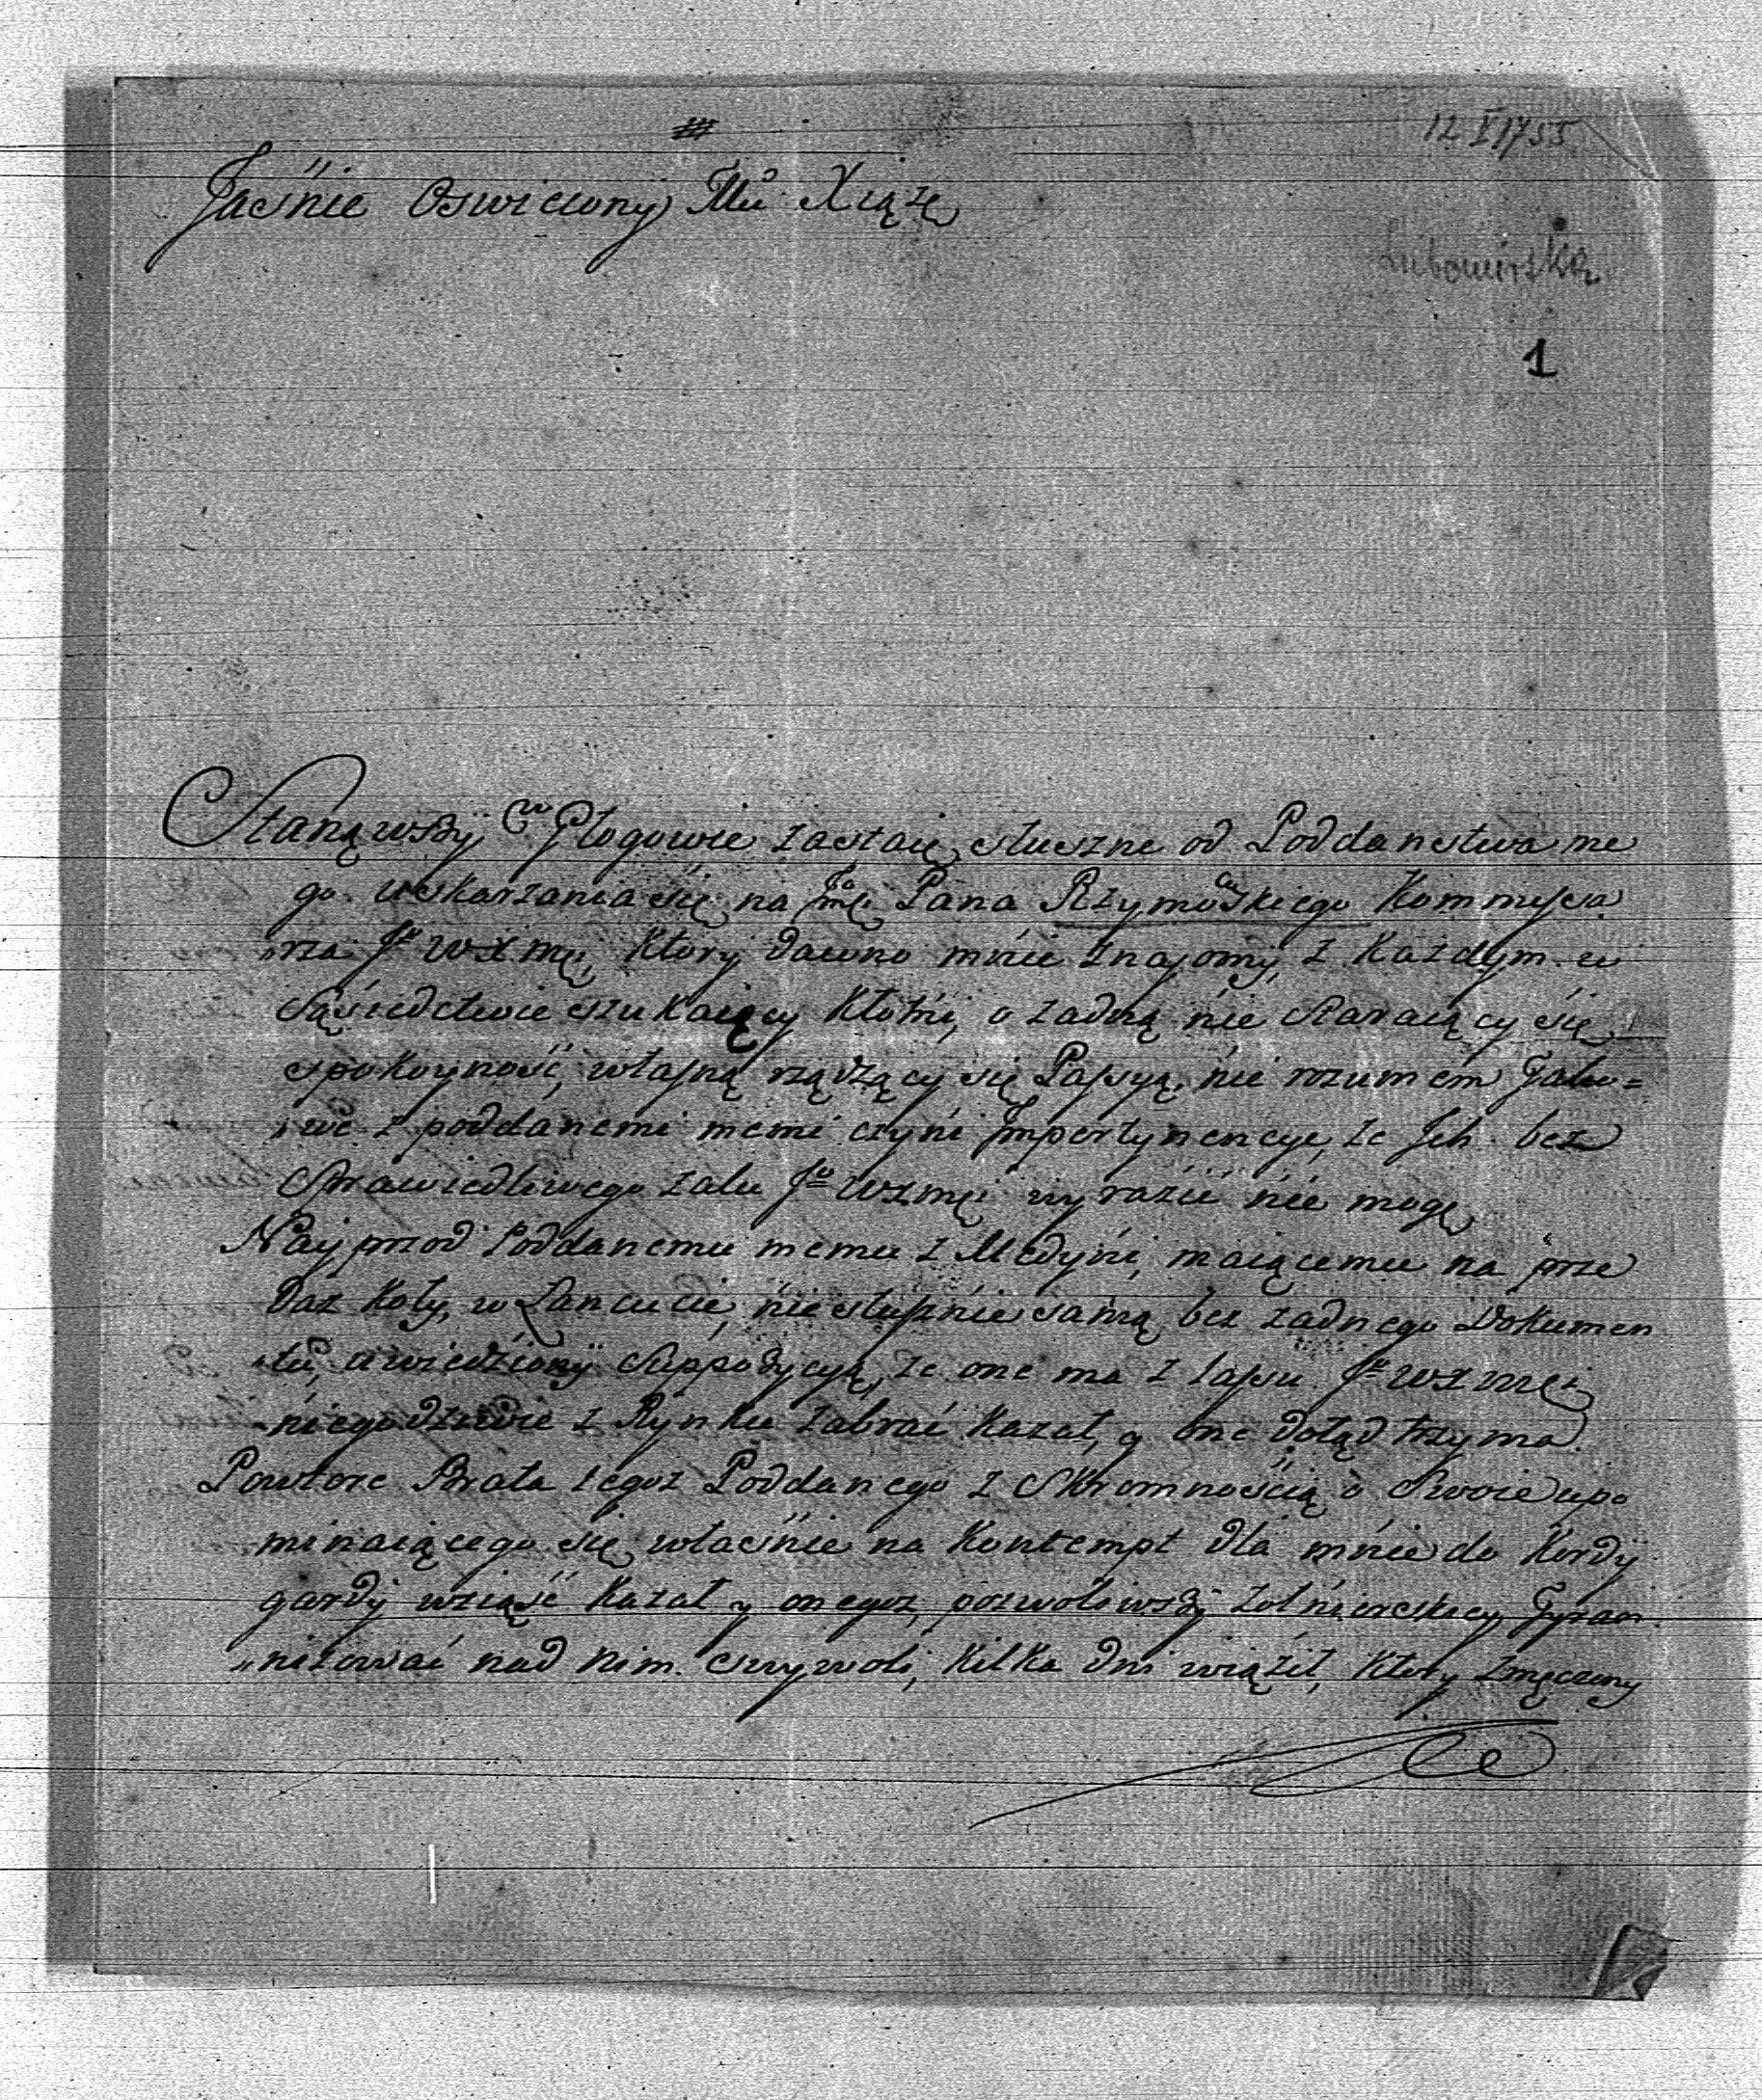 12 V 1755
Jaśnie Oswiecony Mći Xiąże
Lubomirska
1
Stanąwszy w Głogowie zastaię słuszne od Poddanstwa me
go uskarzania się na Jmći Pana Rzymowskiego Kommyssa
rza Jo WXmći, ktory dawno mnie znajomy, z kazdym w
Sąsiedctwie szukaiący kłotni, o zadną nie staraiący się
spokoyność, własną rządzący się Passyą, nie rozumem Tako=
we z poddanemi memi czyni Impertynencye, ze Ich bez
Sprawiedliwego zalu Jo WXmći wyrazić nie mogę
Nayprzod Poddanemu memu z Medyni, maiącemu na prze
daz koły, w Lancucie, niesłusznie samą bez zadnego Dokumen
tu, uwiedziony Suppozycyą, ze one ma z lassu Jo WXmći
niegodziwie z Rynku zabrać kazał, y one dotąd trzyma.
Powtore Brata tegoz Poddanego z Skromnością o Swoie upo
minaiącego się własnie na Kontempt dla mnie do Kordy
gardy wziąść kazał y onegoz pozwoliwszy zołnierskiey Tyran
nizować nad nim swywoli, kilka dni więził, ktory zmęczony